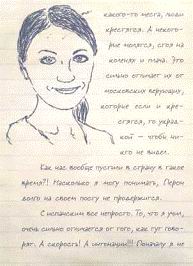 какого-то места, люди
крестятся. А некото-
рые молятся, стоя на
коленях и плача. Это
сильно отличает их от
московских верующих,
которые если и кре-
стятся, то украд-
кой — чтобы ни-
кто не видел.
Как нас вообще пустили в страну в такое
время?! Насколько я могу понимать, Перон
долго на своем посту не продержится.
С испанским все непросто. То, что я учил,
очень сильно отличается от того, как тут гово-
рят. А скорость! А интонации!!! Поначалу я не